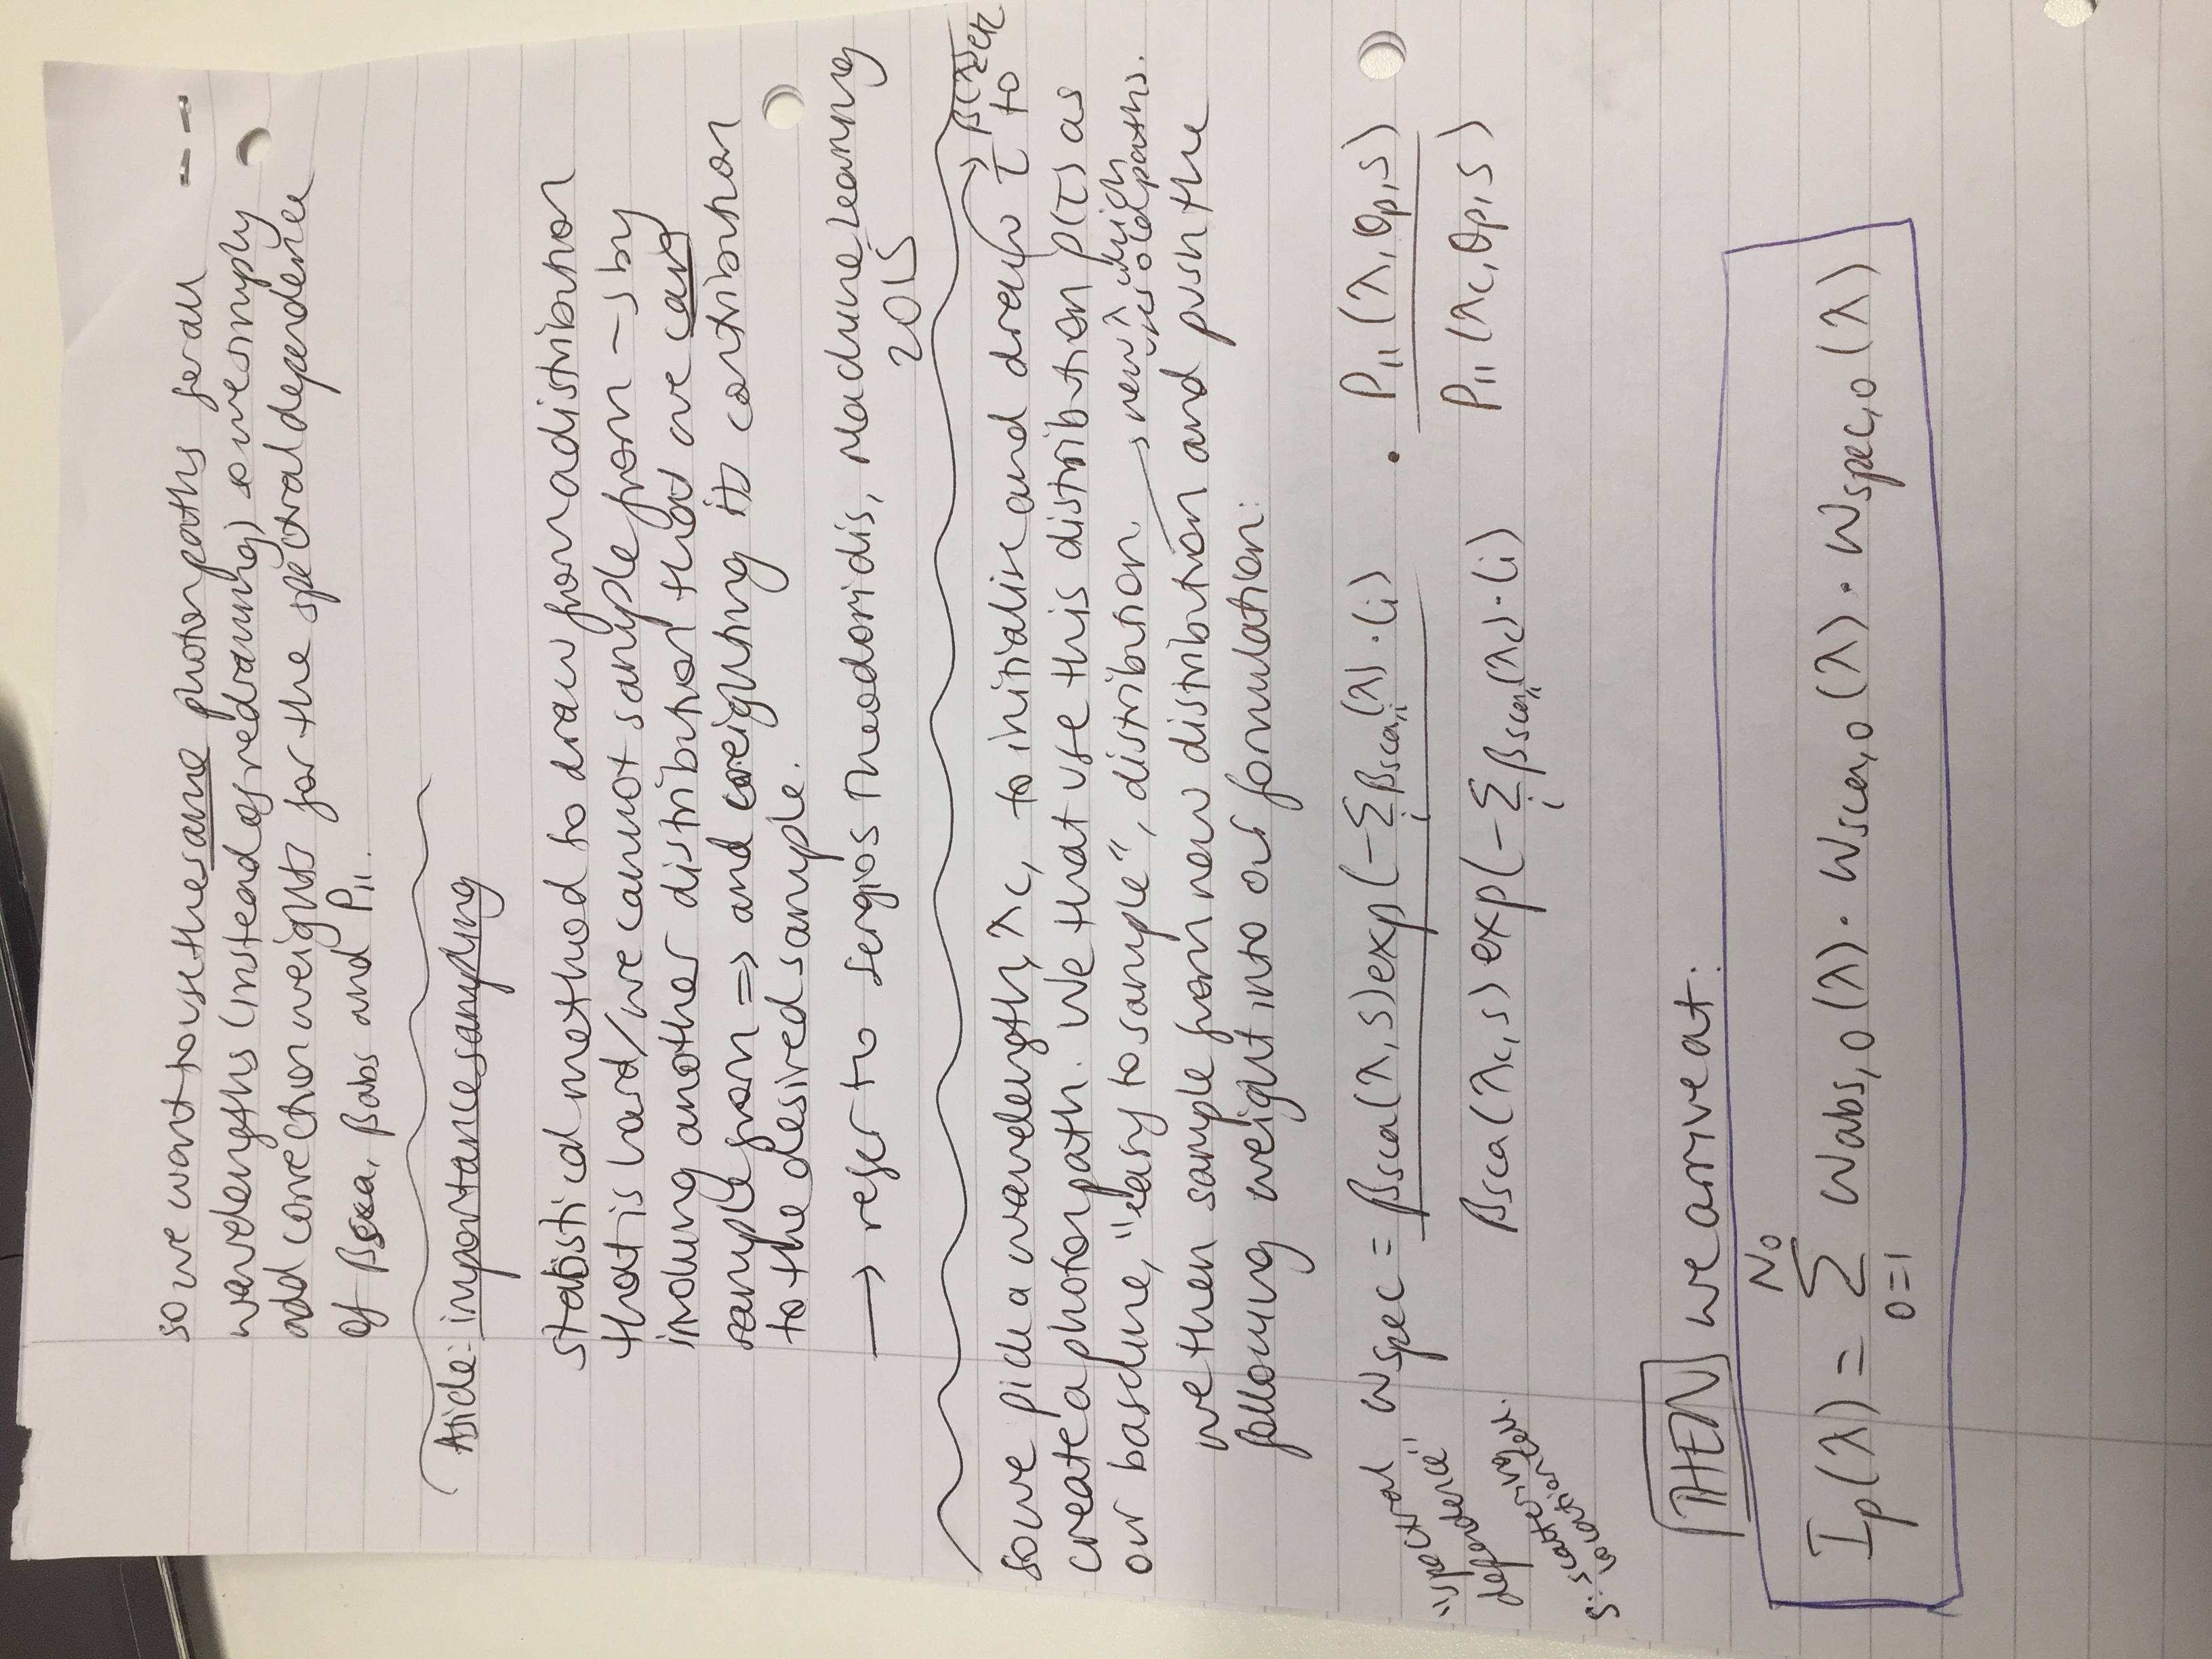 so we want to use the same photon paths for all
wavelengths (instead of redrawing) so we simply
add correction weights for the spectral dependence
of βsca, βabs and P₁₁.
Aside: importance sampling
statistical method to draw from a distribution
that is hard/we cannot sample from → by
involving another distribution that we can
sample from ⇒ and weighting its contribution
to the desired sample.
→ refer to Sergios Theodoridis, Machine Learning
2015
β(λ) etc
so we pick a wavelength, λc, to initialise and draw τ to
create a photon path. We that use this distribution p(τ) as
our baseline, "easy to sample", distribution.
→ new λ which
uses old paths.
we then sample from new distribution and push the
following weight into our formulation:
"spectral
dependence"
s: scattering
location cell.
ωspec = βsca(λ, s) exp(-Σᵢ βsca,ᵢ(λ) · lᵢ) / βsca(λc, s) exp(-Σᵢ βsca,ᵢ(λc) · lᵢ) · P₁₁(λ, θp, s) / P₁₁(λc, θp, s)
THEN we arrive at:
Ip(λ) = Σ_{o=1}^{No} ωabs,o(λ) · ωsca,o(λ) · ωspec,o(λ)